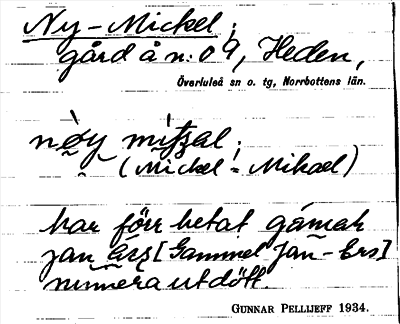 Ny-Mickel;
gård å n:o 9, Heden,
Överluleå sn o. tg, Norrbottens län.
nøy mitsal;
(Mickel = Mikael)
har förr hetat gámah
jan ärs [Gammel Jan-Ers]
numera utdött.
GUNNAR PELLIJEFF 1934.